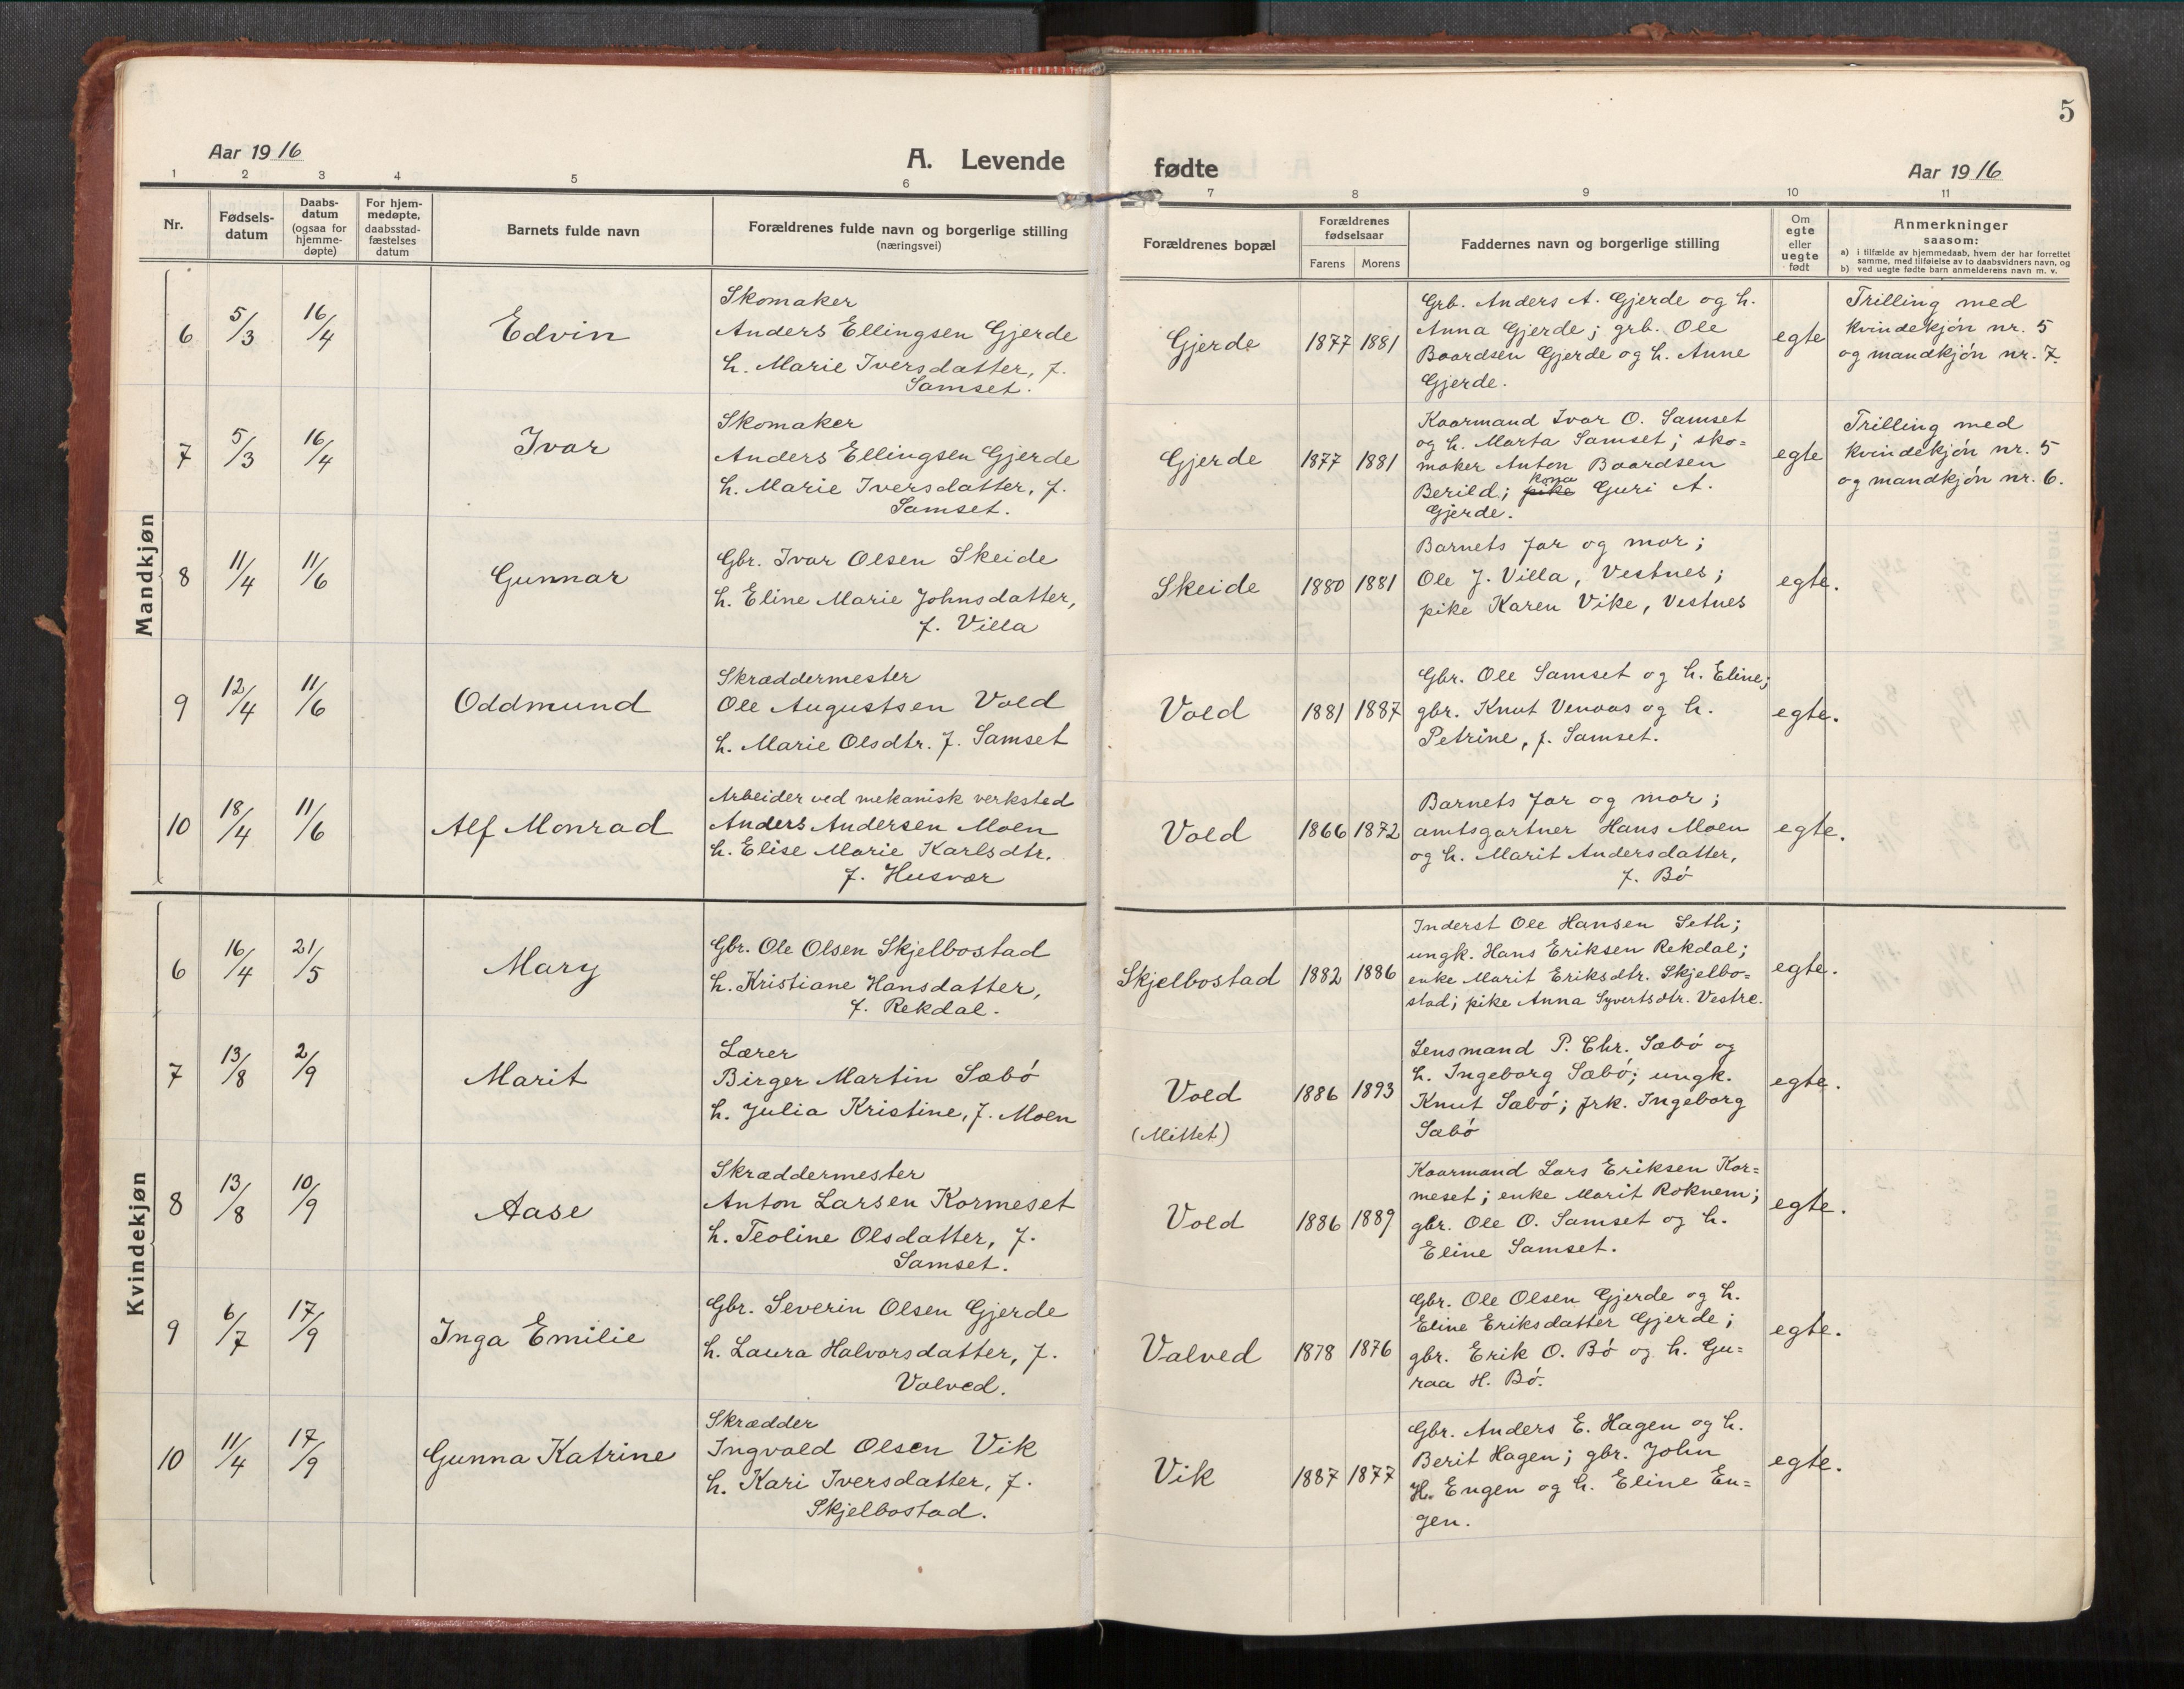 5
Aar 1916
A. Levende fødte
Aar 1916
1 2 3 4 5 6 7 8 9 10 11
Nr.
Fødsels-
datum
Daabs-
datum
(ogsaa for
hjemme-
døpte)
For hjem-
medøpte,
daabsstad-
fæstelses
datum
Barnets fulde navn
Forældrenes fulde navn og borgerlige stilling
(næringsvei)
Forældrenes bopæl
Forældrenes
fødselsaar
Farens Morens
Faddernes navn og borgerlige stilling
Om
egte
eller
uegte
født
Anmerkninger
saasom:
a) i tilfælde av hjemmedaab, hvem der har forrettet
samme, med tilføielse av to daabsvidners navn, og
b) ved uegte fødte barn anmelderens navn m. v.
Mandkjøn
6 5/3 16/4 Edvin
Skomaker
Anders Ellingsen Gjerde
h. Marie Iversdatter, f.
Samset.
Gjerde 1877 1881
Grb. Anders A. Gjerde og h.
Anna Gjerde; grb. Ole
Baardsen Gjerde og h. Anne
Gjerde.
egte
Trilling med
kvindekjön nr. 5
og mandkjön nr. 7.
7 5/3 16/4 Ivar
Skomaker
Anders Ellingsen Gjerde
h. Marie Iversdatter, f.
Samset.
Gjerde 1877 1881
Kaarmand Ivar O. Samset
og h. Marta Samset; sko=
maker Anton Baardsen
kona
Berild; pike Guri A.
Gjerde.
egte
Trilling med
kvindekjön nr. 5
og mandkjön nr. 6.
8 11/4 11/6 Gunnar
Gbr. Ivar Olsen Skeide
h. Eline Marie Johnsdatter,
f. Villa
Skeide 1880 1881
Barnets far og mor;
Ole J. Villa, Vestnes;
pike Karen Vike, Vestnes
egte.
9 12/4 11/6 Oddmund
Skræddermester
Ole Augustsen Vold
h. Marie Olsdtr. f. Samset
Vold 1881 1887
Gbr. Ole Samset og h. Eline;
gbr. Knut Venaas og h.
Petrine, f. Samset.
egte.
10 18/4 11/6 Alf Monrad
Arbeider ved mekanisk verksted
Anders Andersen Moen
h. Elise Marie Karlsdtr.
f. Husvær
Vold 1866 1872
Barnets far og mor;
amtsgartner Hans Moen
og h. Marit Andersdatter,
f. Bö
egte.
Kvindekjøn
6 16/4 21/5 Mary
Gbr. Ole Olsen Skjelbostad
h. Kristiane Hansdatter,
f. Rekdal.
Skjelbostad 1882 1886
Inderst Ole Hansen Seth;
ungk. Hans Eriksen Rekdal;
enke Marit Eriksdtr. Skjelbo=
stad; pike Anna Syvertsdtr. Vestre.
egte.
7 13/8 2/9 Marit
Lærer
Birger Martin Sæbö
h. Julia Kristine, f. Moen
Vold
(Mittet)
1886 1893
Lensmand P. Chr. Sæbö og
h. Ingeborg Sæbö; ungk.
Knut Sæbö; frk. Ingeborg
Sæbö
egte.
8 13/8 10/9 Aase
Skræddermester
Anton Larsen Kormeset
h. Teoline Olsdatter, f.
Samset.
Vold 1886 1889
Kaarmand Lars Eriksen Kor=
meset; enke Marit Roknem;
gbr. Ole O. Samset og h.
Eline Samset.
egte.
9 6/7 17/9 Inga Emilie
Gbr. Severin Olsen Gjerde
h. Laura Halvorsdatter, f.
Valved.
Valved 1878 1876
Gbr. Ole Olsen Gjerde og h.
Eline Eriksdatter Gjerde;
gbr. Erik O. Bö og h. Gu=
raa H. Bö.
egte.
10 11/4 17/9 Gunna Katrine
Skrædder
Ingvald Olsen Vik
h. Kari Iversdatter, f.
Skjelbostad.
Vik 1887 1877
Gbr. Anders E. Hagen og h.
Berit Hagen; gbr. John
H. Engen og h. Eline En=
gen.
egte.